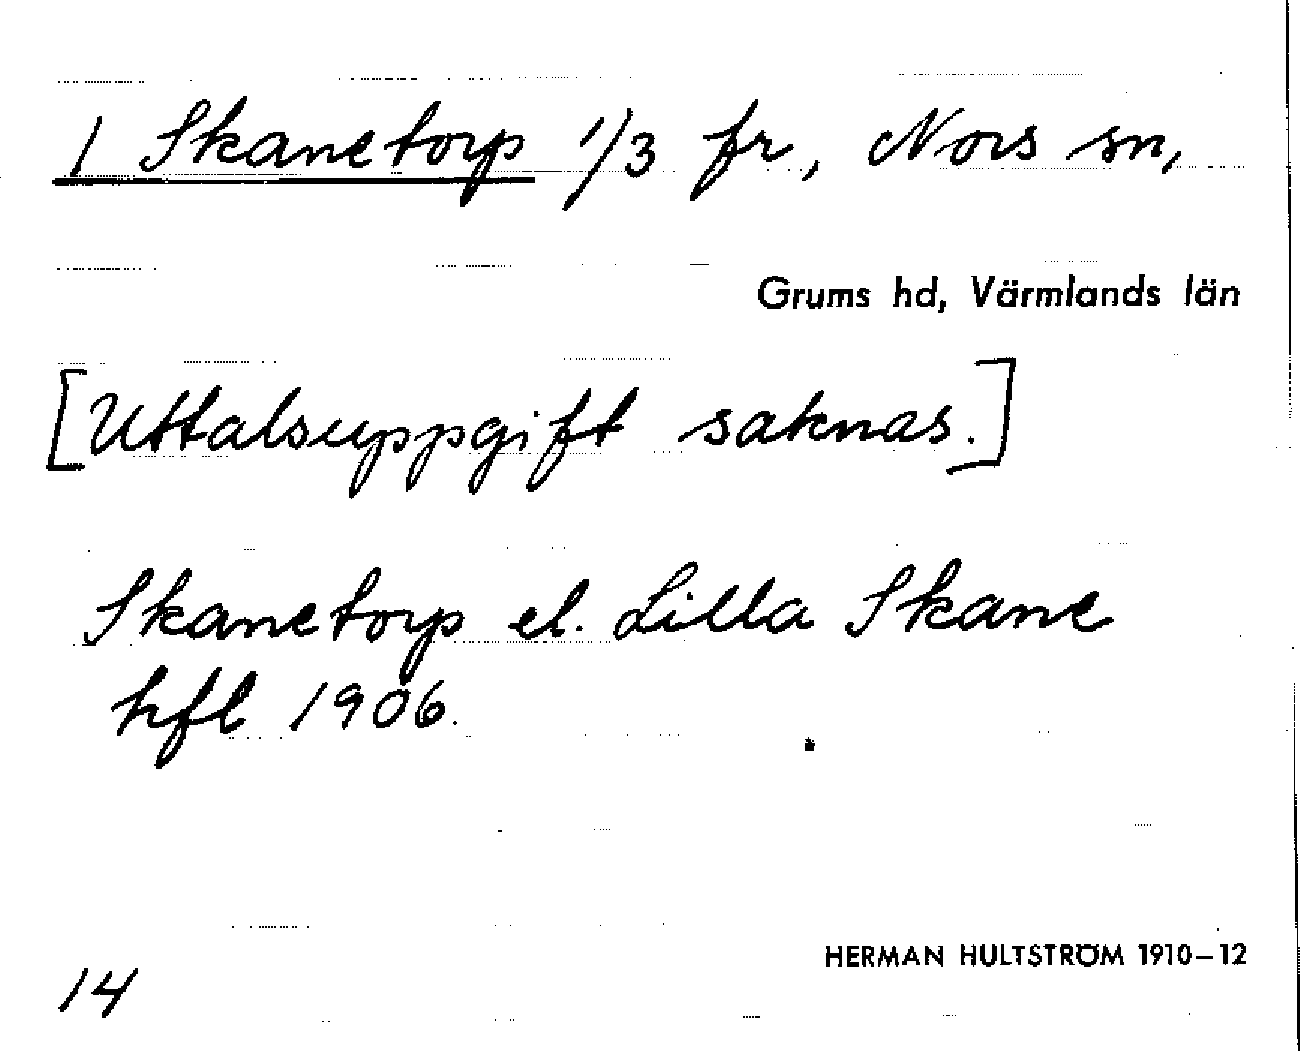 1 Skanetorp 1/3 fr, Nors sn,
Grums hd, Värmlands län
[Uttalsuppgift saknas.]
Skanetorp el. Lilla Skane
hfl 1906.
HERMAN HULTSTRÖM 1910–12
14